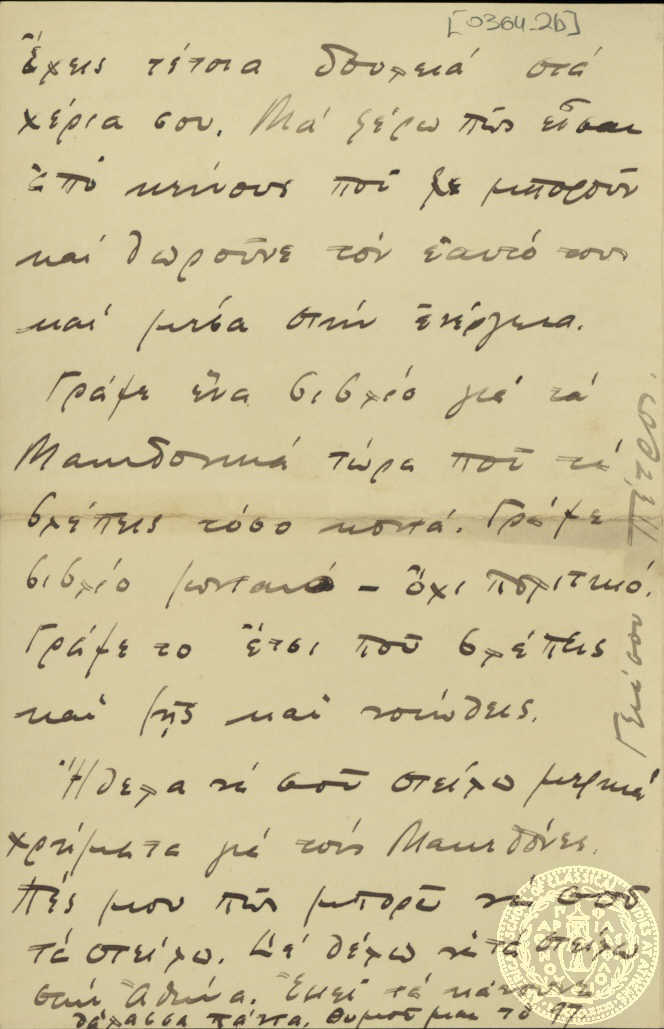 [0364-2b]
Ἔχεις τέτοια δουλειά στὰ
χέρια σου. Μὰ ξέρω πὼς εἶσαι
ἀπὸ κείνους ποῦ ζε μποροῦν
καὶ θωροῦνε τὸν ἑαυτό τους
καὶ μέσα στὴν ἐνέργεια.
Γράψε ἕνα βιβλίο γιὰ τὰ
Μακεδονικὰ τώρα ποῦ τὰ
βλέπεις τόσο κοντά. Γράψε
βιβλίο ζωντανὸ – ὄχι πολιτικό.
Γράψε το ἔτσι ποῦ βλέπεις
καὶ ζῇς καὶ νοιώθεις.
Ἤθελα νὰ σοῦ στείλω μερικὰ
χρήματα γιὰ τοὺς Μακεδόνες.
Πές μου πῶς μπορῶ νὰ σοῦ
τὰ στείλω. Δὲ θέλω νὰ τὰ στείλω
στὴν Ἀθήνα. Ἐκεῖ τὰ κάνουνε
θάλασσα πάντα. Θυμοῦμαι τὸ 97
Γειά σου Πέτρο.